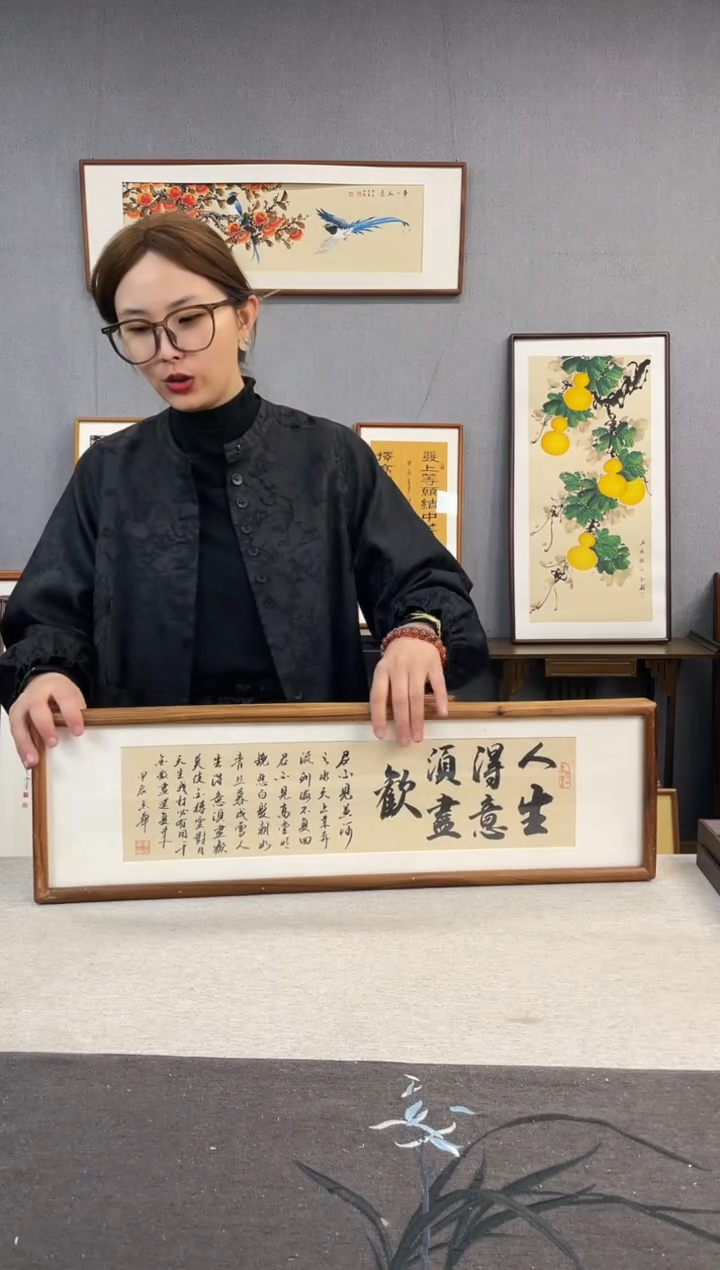 人生
得意
須盡
歡
君不見黃河
之水天上來奔
流到海不復回
君不見高堂明
鏡悲白髮朝如
青絲暮成雪人
生得意須盡歡
莫使金樽空對月
天生我材必有用千
金散盡還復來
甲辰
發上等願結中
擇高